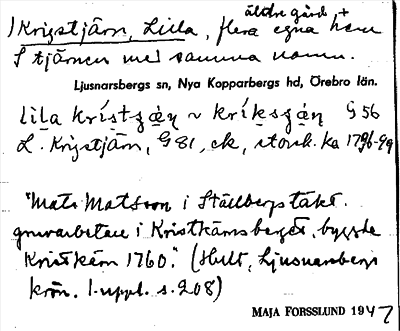 äldre gård +
Krigstjärn, Lilla, flera egna hem
S tjärnen med samma namn.
Ljusnarsbergs sn, Nya Kopparbergs hd, Örebro län.
lila krístʒæ̣ṇ ~ kríksʒæ̣ṇ G 56
L. Krigstjärn, G 81, ek, storsk. ka 1796-99
"Mats Matsson i Ställbergstäkt.
gruvarbetare i Kristkärnsberget, byggde
Kristkärn 1760." (Hult, Ljusnarsbergs
krön. 1. uppl. s. 208)
MAJA FORSSLUND 1947